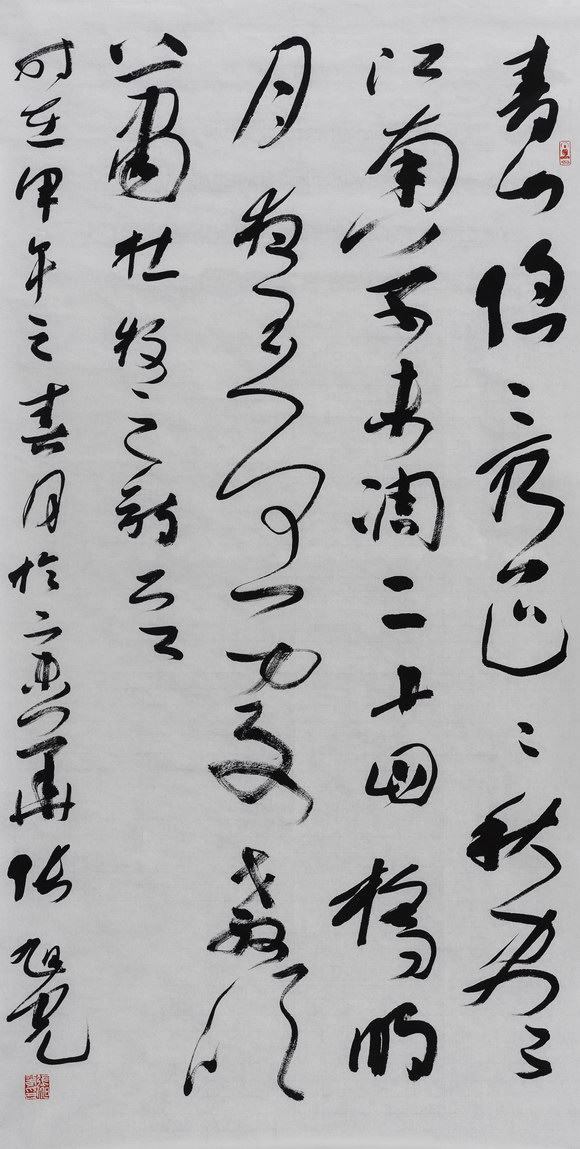 青山隐々水迢々秋尽
江南草未凋二十四桥明
月夜玉人何处教吹
萧杜牧之詩
时在甲午之春月於京華张旭光